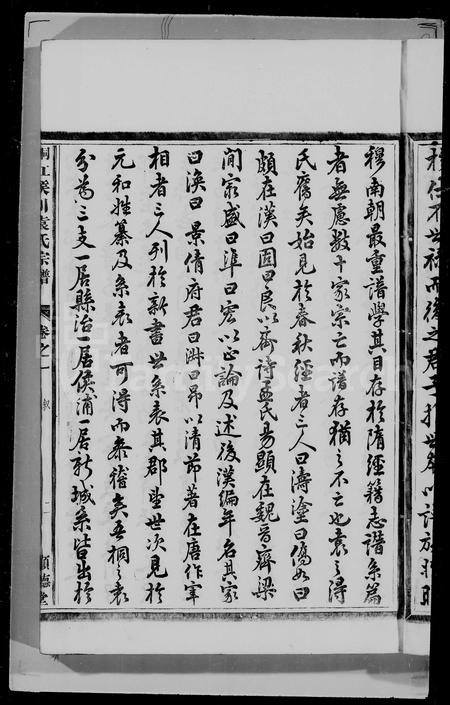 穆南朝最重譜學其目存於隋經籍志譜系篇
者無慮數十家宗亡而譜存猶之不亡也袁之得
氏舊矣始見於春秋經者三人曰濤塗曰僑如曰
頗在漢曰固曰良以齊詩孟氏易顯在魏晉齊梁
間家盛曰準曰宏以正論及述後漢編年名其家
曰渙曰景倩府君曰淵曰昂以清節著在唐作宰
相者三人列於新書世系表其郡望世次見於
元和姓纂及系表者可得而參稽矣吾桐之袁
分為三支一居縣治一居俟浦一居新城系皆出於
桐江 川袁氏宗譜 卷之一 敘 二
而後之君子